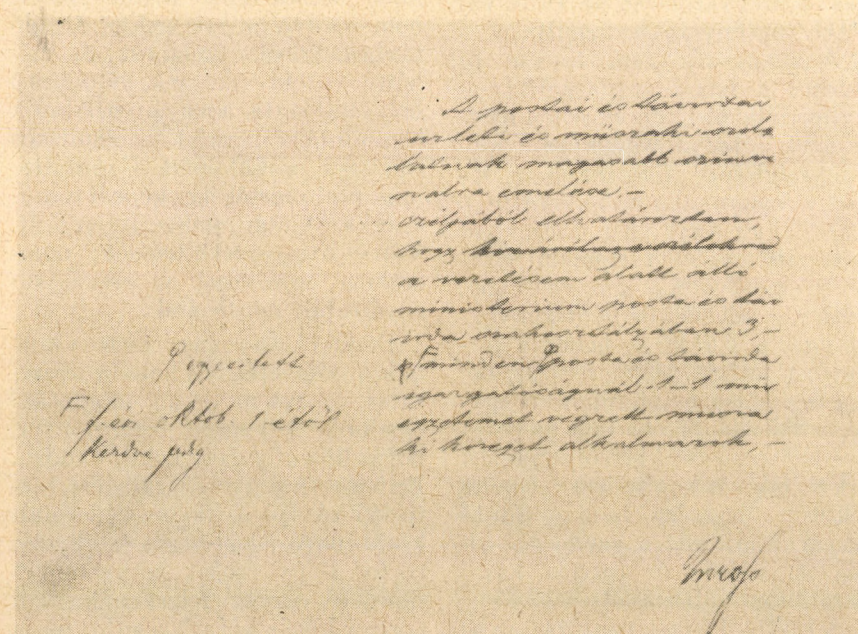 A postai és távirdai
üzleti és műszaki szolg
latnak magasabb szinvo
nalra emelése, –
czéljából elhatároztam,
hogy
a vezetésem alatt álló
ministerium posta és táv
irda szakosztályában 3, –
F minden posta és távirda
igazgatóságnál 1–1 mű
egyetemet végzett műsza
ki közeget alkalmazok, –
egyesitett
F f. évi októb. 1-étől
kezdve pdg
Baross